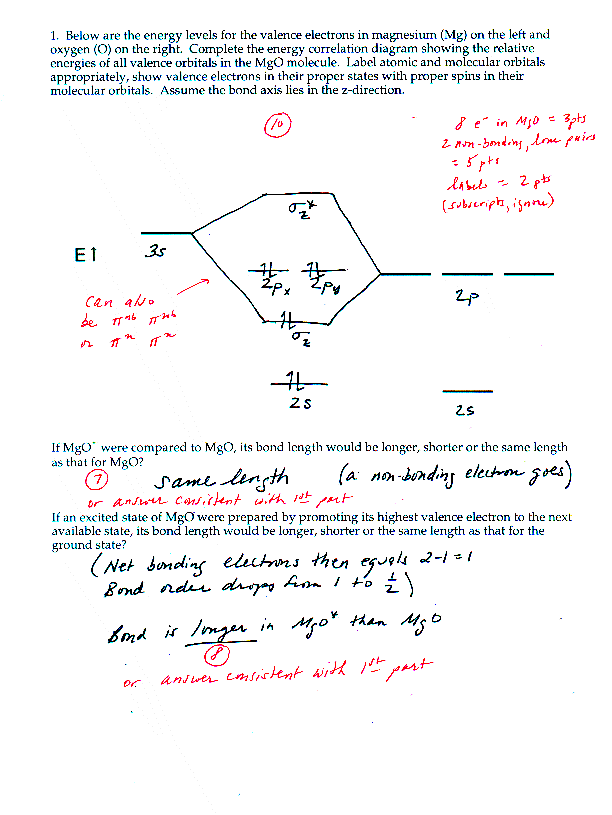 1. Below are the energy levels for the valence electrons in magnesium (Mg) on the left and
oxygen (O) on the right. Complete the energy correlation diagram showing the relative
energies of all valence orbitals in the MgO molecule. Label atomic and molecular orbitals
appropriately, show valence electrons in their proper states with proper spins in their
molecular orbitals. Assume the bond axis lies in the z-direction.
10
8 e⁻ in MgO = 3pts
2 non-bonding, lone pairs
= 5 pts
labels = 2 pts
(subscripts, ignore)
σz*
E↑
3s
2px 2py
2p
Can also
be πnb πnb
or πn πn
σz
2s
2s
If MgO⁺ were compared to MgO, its bond length would be longer, shorter or the same length
as that for MgO?
7
same length (a non-bonding electron goes)
or answer consistent with 1st part
If an excited state of MgO were prepared by promoting its highest valence electron to the next
available state, its bond length would be longer, shorter or the same length as that for the
ground state?
(Net bonding electrons then equals 2-1=1
Bond order drops from 1 to 1/2)
Bond is longer in MgO* than MgO
8
or answer consistent with 1st part